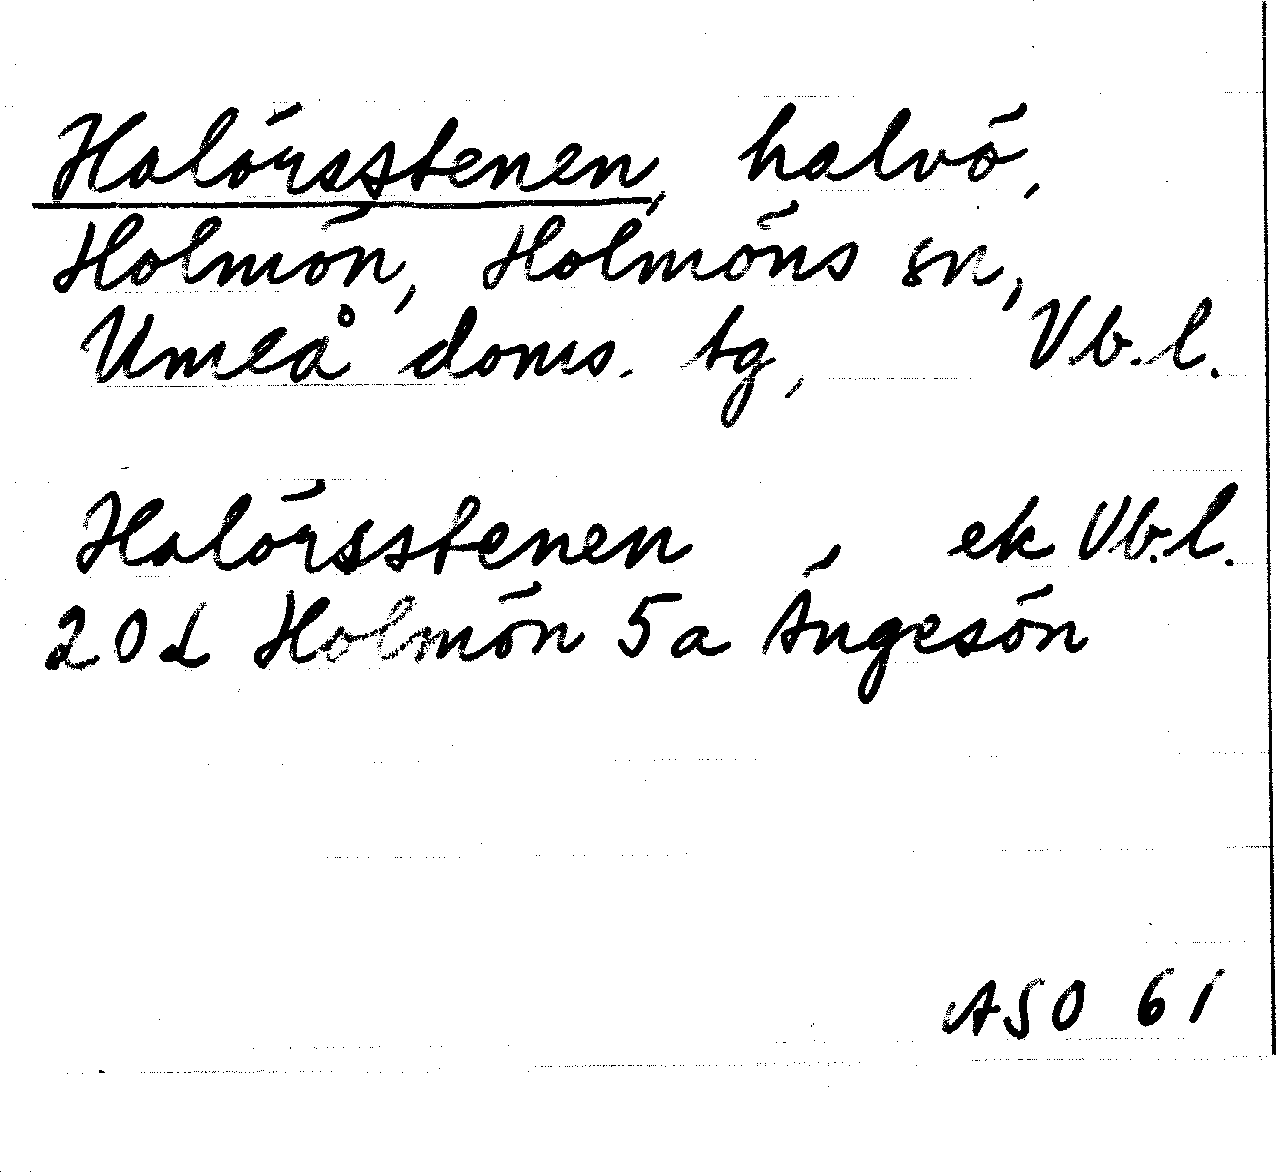 Halörsstenen, halvö,
Holmön, Holmöns sn,
Umeå doms. tg, Vb.l.
Halörsstenen, ek Vb.l.
20d Holmön 5a Ängesön
ASO 61